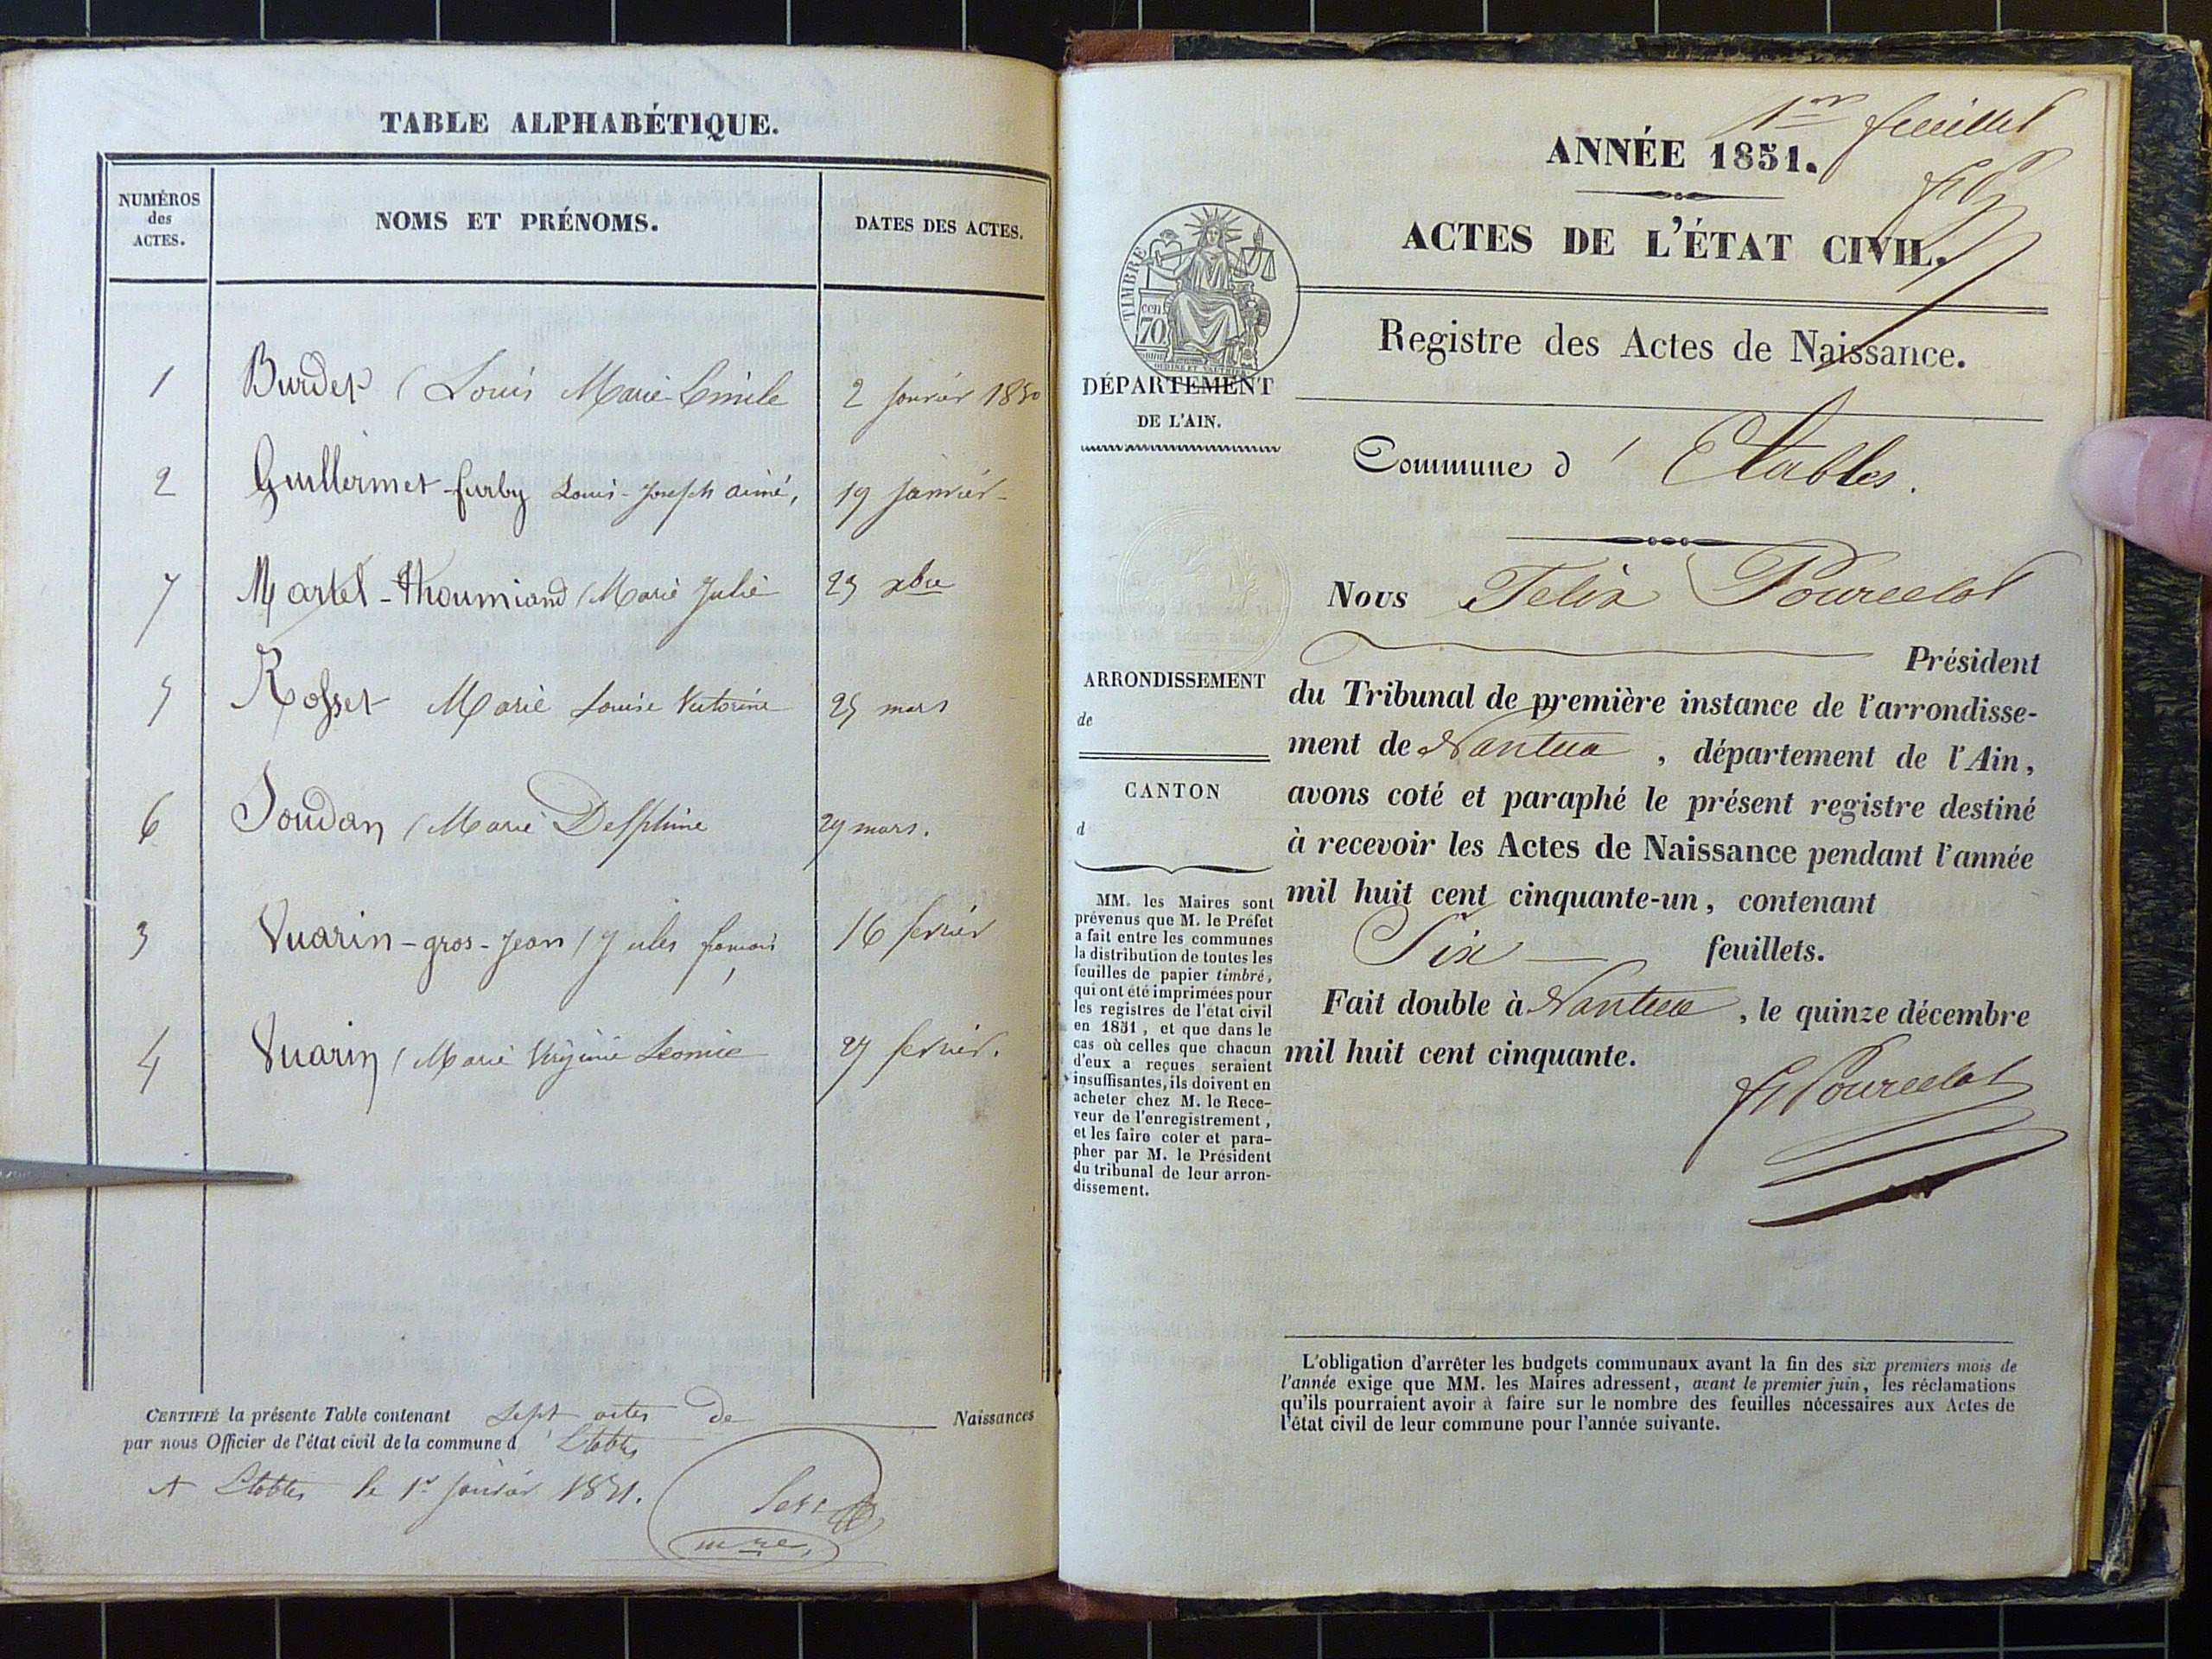 TABLE ALPHABÉTIQUE.
NUMÉROS
des
ACTES.
NOMS ET PRÉNOMS.
DATES DES ACTES.
1 Burdet (Louis Marie Emile 2 janvier 1850
2 Guillermet-furby Louis-Joseph aimé, 19 janvier
7 Martel-thoumiand (Marie Julie 23 xbre
5 Rosset Marie Louise Victorine 25 mars
6 Joudan (Marie Delphine 29 mars.
3 Vuarin-gros-Jean (Jules françois 16 fevrier
4 Vuarin (Marie Virginie Leonie 27 fevrier.
CERTIFIÉ la présente Table contenant Sept actes de Naissances
par nous Officier de l'état civil de la commune d'Etables
A Etables le 1er janvier 1851.
mre,
1er feuillet
ANNÉE 1851.
ACTES DE L'ÉTAT CIVIL.
TIMBRE
cen
70
Registre des Actes de Naissance.
DÉPARTEMENT
DE L'AIN.
Commune d'Etables.
Nous Felix Pourcelot
Président
du Tribunal de première instance de l'arrondisse-
ment de Nantua, département de l'Ain,
avons coté et paraphé le présent registre destiné
à recevoir les Actes de Naissance pendant l'année
mil huit cent cinquante-un, contenant
Six feuillets.
Fait double à Nantua, le quinze décembre
mil huit cent cinquante.
F Pourcelot
ARRONDISSEMENT
de
CANTON
d
MM. les Maires sont
prévenus que M. le Préfet
a fait entre les communes
la distribution de toutes les
feuilles de papier timbré,
qui ont été imprimées pour
les registres de l'état civil
en 1851, et que dans le
cas où celles que chacun
d'eux a reçues seraient
insuffisantes, ils doivent en
acheter chez M. le Rece-
veur de l'enregistrement,
et les faire coter et para-
pher par M. le Président
du tribunal de leur arron-
dissement.
L'obligation d'arrêter les budgets communaux avant la fin des six premiers mois de
l'année exige que MM. les Maires adressent, avant le premier juin, les réclamations
qu'ils pourraient avoir à faire sur le nombre des feuilles nécessaires aux Actes de
l'état civil de leur commune pour l'année suivante.